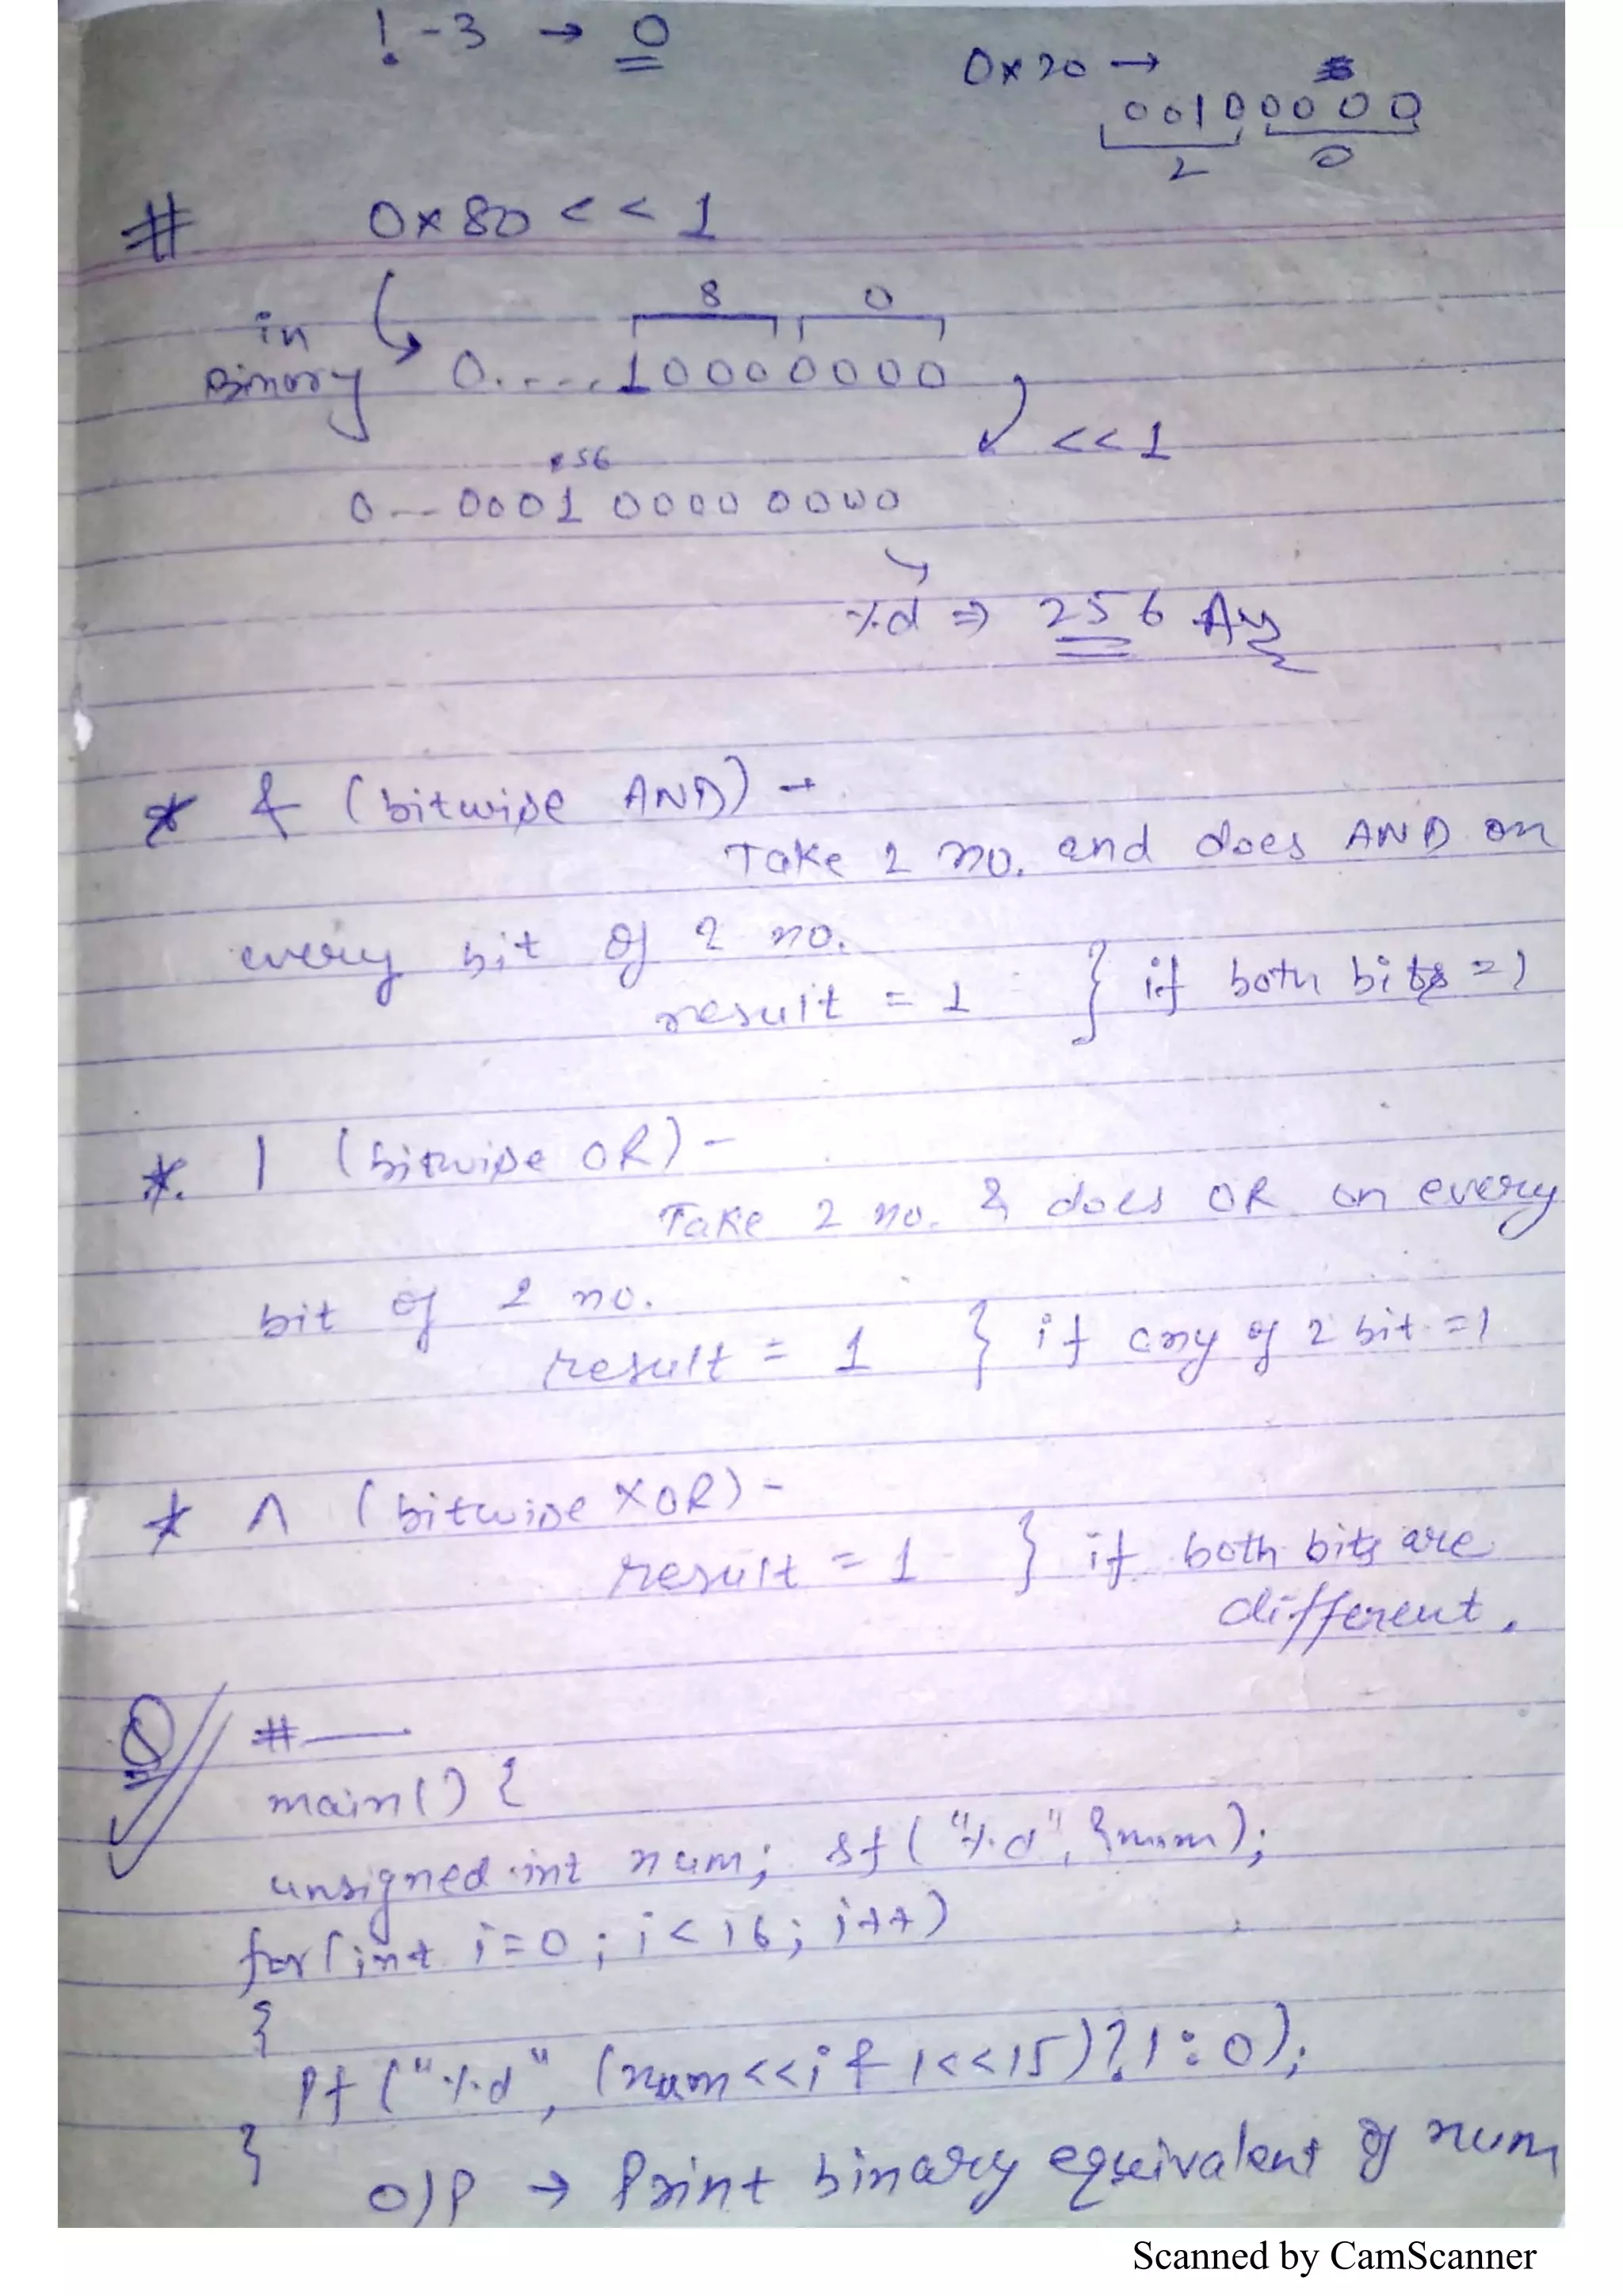 ! -3 → 0
0x20 →
00100000
2 0
# 0x80 << 1
8 0
in
Binary 0.....10000000
<< 1
256
0---0001 0000 0000
%d ⇒ 256 Ans
* & (bitwise AND) →
Take 2 no. and does AND on
every bit of 2 no.
result = 1 } if both bits = 1
* | (bitwise OR) -
Take 2 no. & does OR on every
bit of 2 no.
result = 1 } if any of 2 bit = 1
* ^ (bitwise XOR) -
result = 1 } if both bits are
different.
Q # —
main() {
unsigned int num; sf("%d", &num);
for(int i=0; i<16; i++)
{
Pf("%d", (num<<i & 1<<15)?1:0);
}
O/P → Print binary equivalent of num
Scanned by CamScanner